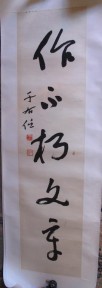 作不朽文章
于右任